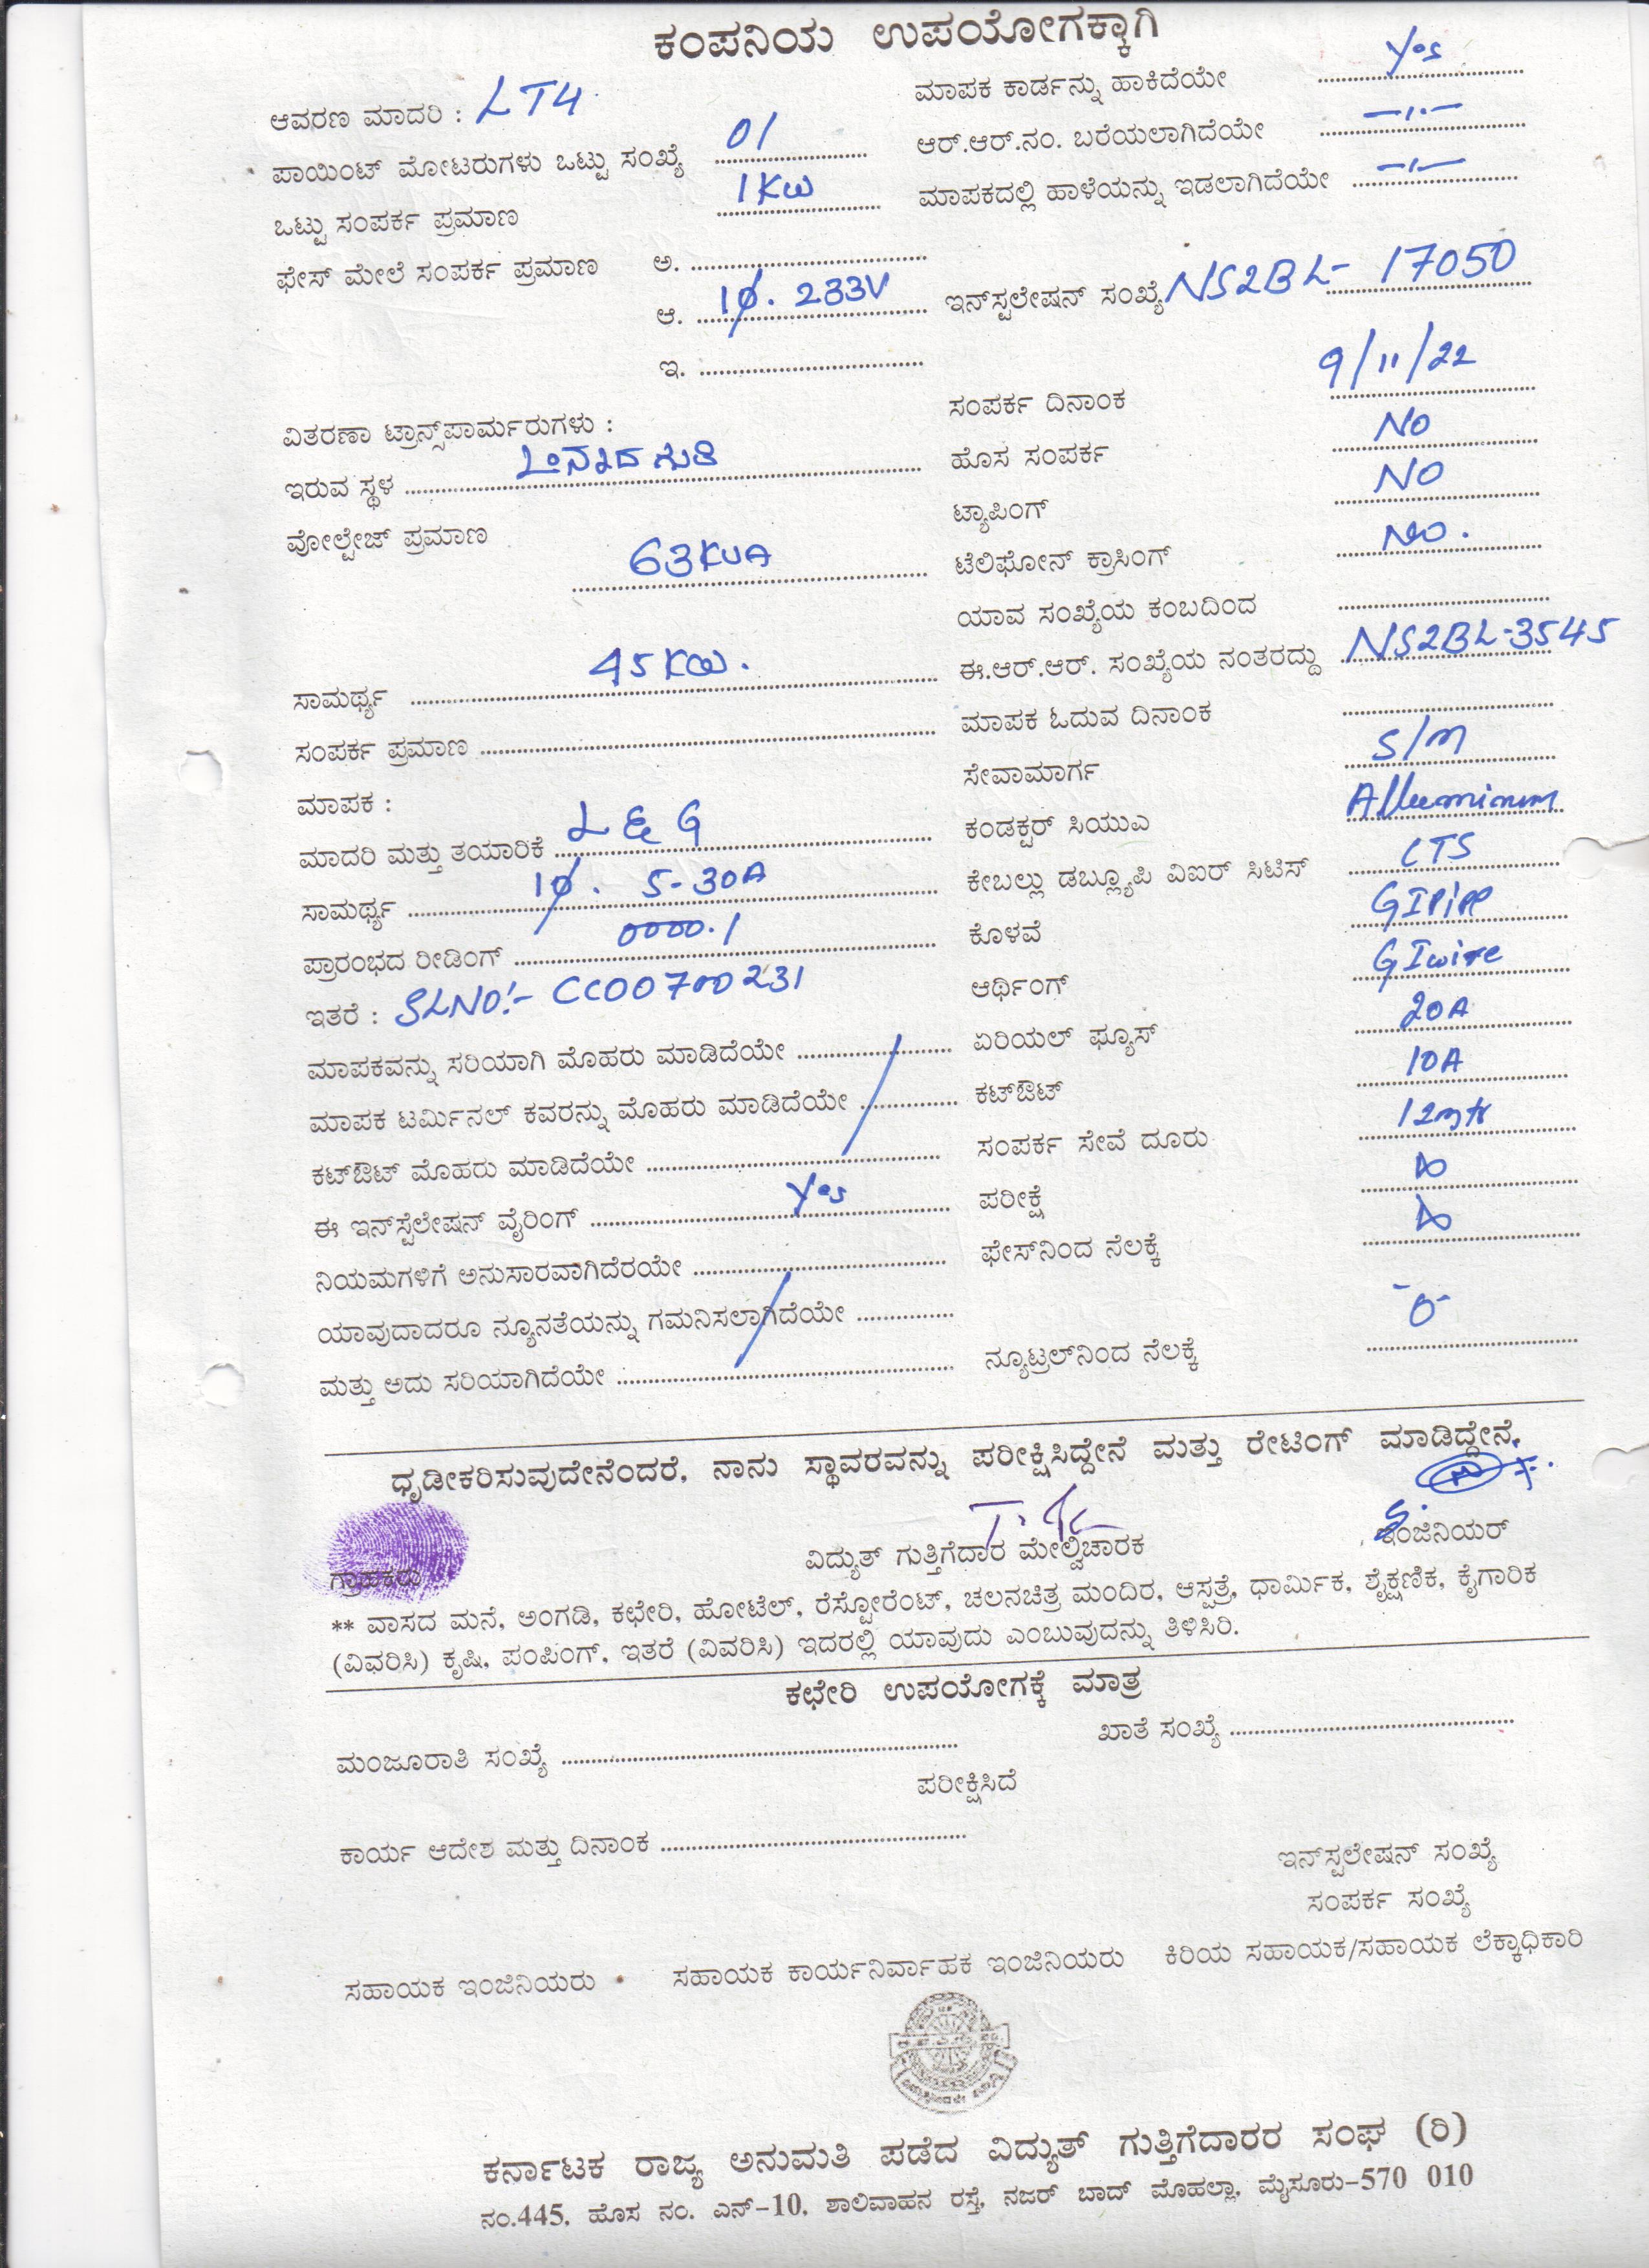 ಕಂಪನಿಯ ಉಪಯೋಗಕ್ಕಾಗಿ
ಆವರಣ ಮಾದರಿ : LT4
ಮಾಪಕ ಕಾರ್ಡನ್ನು ಹಾಕಿದೆಯೇ Yes
ಪಾಯಿಂಟ್ ಮೋಟರುಗಳು ಒಟ್ಟು ಸಂಖ್ಯೆ 01
ಆರ್.ಆರ್.ನಂ. ಬರೆಯಲಾಗಿದೆಯೇ —"—
ಒಟ್ಟು ಸಂಪರ್ಕ ಪ್ರಮಾಣ 1KW
ಮಾಪಕದಲ್ಲಿ ಹಾಳೆಯನ್ನು ಇಡಲಾಗಿದೆಯೇ —"—
ಫೇಸ್ ಮೇಲೆ ಸಂಪರ್ಕ ಪ್ರಮಾಣ ಅ.
ಆ. 1ϕ. 233V
ಇನ್‌ಸ್ಟಲೇಷನ್ ಸಂಖ್ಯೆ NS2BL- 17050
ಇ.
ಸಂಪರ್ಕ ದಿನಾಂಕ 9/11/22
ವಿತರಣಾ ಟ್ರಾನ್ಸ್‌ಪಾರ್ಮರುಗಳು :
ಹೊಸ ಸಂಪರ್ಕ NO
ಇರುವ ಸ್ಥಳ
ಟ್ಯಾಪಿಂಗ್ NO
ವೋಲ್ಟೇಜ್ ಪ್ರಮಾಣ 63KVA
ಟೆಲಿಫೋನ್ ಕ್ರಾಸಿಂಗ್ No.
ಯಾವ ಸಂಖ್ಯೆಯ ಕಂಬದಿಂದ
ಸಾಮರ್ಥ್ಯ 45KW.
ಈ.ಆರ್.ಆರ್. ಸಂಖ್ಯೆಯ ನಂತರದ್ದು NS2BL-3545
ಸಂಪರ್ಕ ಪ್ರಮಾಣ
ಮಾಪಕ ಓದುವ ದಿನಾಂಕ
ಮಾಪಕ :
ಸೇವಾಮಾರ್ಗ S/m
ಮಾದರಿ ಮತ್ತು ತಯಾರಿಕೆ L & G
ಕಂಡಕ್ಟರ್ ಸಿಯುಎ Alluminum
ಸಾಮರ್ಥ್ಯ 1ϕ. 5-30A
ಕೇಬಲ್ಲು ಡಬ್ಲ್ಯೂಪಿ ವಿಐರ್ ಸಿಟಿಸ್ CTS
ಪ್ರಾರಂಭದ ರೀಡಿಂಗ್ 0000.1
ಕೊಳವೆ GI Pipe
ಇತರೆ : SLNO:- CC00700231
ಆರ್ಥಿಂಗ್ GI wire
ಮಾಪಕವನ್ನು ಸರಿಯಾಗಿ ಮೊಹರು ಮಾಡಿದೆಯೇ
ಏರಿಯಲ್ ಫ್ಯೂಸ್ 20A
ಮಾಪಕ ಟರ್ಮಿನಲ್ ಕವರನ್ನು ಮೊಹರು ಮಾಡಿದೆಯೇ
ಕಟ್‌ಔಟ್ 10A
ಕಟ್‌ಔಟ್ ಮೊಹರು ಮಾಡಿದೆಯೇ
ಸಂಪರ್ಕ ಸೇವೆ ದೂರು 12mtr
ಈ ಇನ್‌ಸ್ಟೆಲೇಷನ್ ವೈರಿಂಗ್ Yes
ಪರೀಕ್ಷೆ ∞
ನಿಯಮಗಳಿಗೆ ಅನುಸಾರವಾಗಿದೆರಯೇ
ಫೇಸ್‌ನಿಂದ ನೆಲಕ್ಕೆ ∞
ಯಾವುದಾದರೂ ನ್ಯೂನತೆಯನ್ನು ಗಮನಿಸಲಾಗಿದೆಯೇ
ಮತ್ತು ಅದು ಸರಿಯಾಗಿದೆಯೇ
ನ್ಯೂಟ್ರಲ್‌ನಿಂದ ನೆಲಕ್ಕೆ -0-
ಧೃಡೀಕರಿಸುವುದೇನೆಂದರೆ, ನಾನು ಸ್ಥಾವರವನ್ನು ಪರೀಕ್ಷಿಸಿದ್ದೇನೆ ಮತ್ತು ರೇಟಿಂಗ್ ಮಾಡಿದ್ದೇನೆ.
ಗ್ರಾಹಕರು ವಿದ್ಯುತ್ ಗುತ್ತಿಗೆದಾರ ಮೇಲ್ವಿಚಾರಕ ಇಂಜಿನಿಯರ್
** ವಾಸದ ಮನೆ, ಅಂಗಡಿ, ಕಛೇರಿ, ಹೋಟೆಲ್, ರೆಸ್ಟೋರೆಂಟ್, ಚಲನಚಿತ್ರ ಮಂದಿರ, ಆಸ್ಪತ್ರೆ, ಧಾರ್ಮಿಕ, ಶೈಕ್ಷಣಿಕ, ಕೈಗಾರಿಕ
(ವಿವರಿಸಿ) ಕೃಷಿ, ಪಂಪಿಂಗ್, ಇತರೆ (ವಿವರಿಸಿ) ಇದರಲ್ಲಿ ಯಾವುದು ಎಂಬುವುದನ್ನು ತಿಳಿಸಿರಿ.
ಕಛೇರಿ ಉಪಯೋಗಕ್ಕೆ ಮಾತ್ರ
ಮಂಜೂರಾತಿ ಸಂಖ್ಯೆ
ಖಾತೆ ಸಂಖ್ಯೆ
ಪರೀಕ್ಷಿಸಿದೆ
ಕಾರ್ಯ ಆದೇಶ ಮತ್ತು ದಿನಾಂಕ
ಇನ್‌ಸ್ಪಲೇಷನ್ ಸಂಖ್ಯೆ
ಸಂಪರ್ಕ ಸಂಖ್ಯೆ
ಸಹಾಯಕ ಇಂಜಿನಿಯರು ಸಹಾಯಕ ಕಾರ್ಯನಿರ್ವಾಹಕ ಇಂಜಿನಿಯರು ಕಿರಿಯ ಸಹಾಯಕ/ಸಹಾಯಕ ಲೆಕ್ಕಾಧಿಕಾರಿ
ಕರ್ನಾಟಕ ರಾಜ್ಯ ಅನುಮತಿ ಪಡೆದ ವಿದ್ಯುತ್ ಗುತ್ತಿಗೆದಾರರ ಸಂಘ (ರಿ)
ನಂ.445, ಹೊಸ ನಂ. ಎನ್-10, ಶಾಲಿವಾಹನ ರಸ್ತೆ, ನಜರ್ ಬಾದ್ ಮೊಹಲ್ಲಾ, ಮೈಸೂರು-570 010